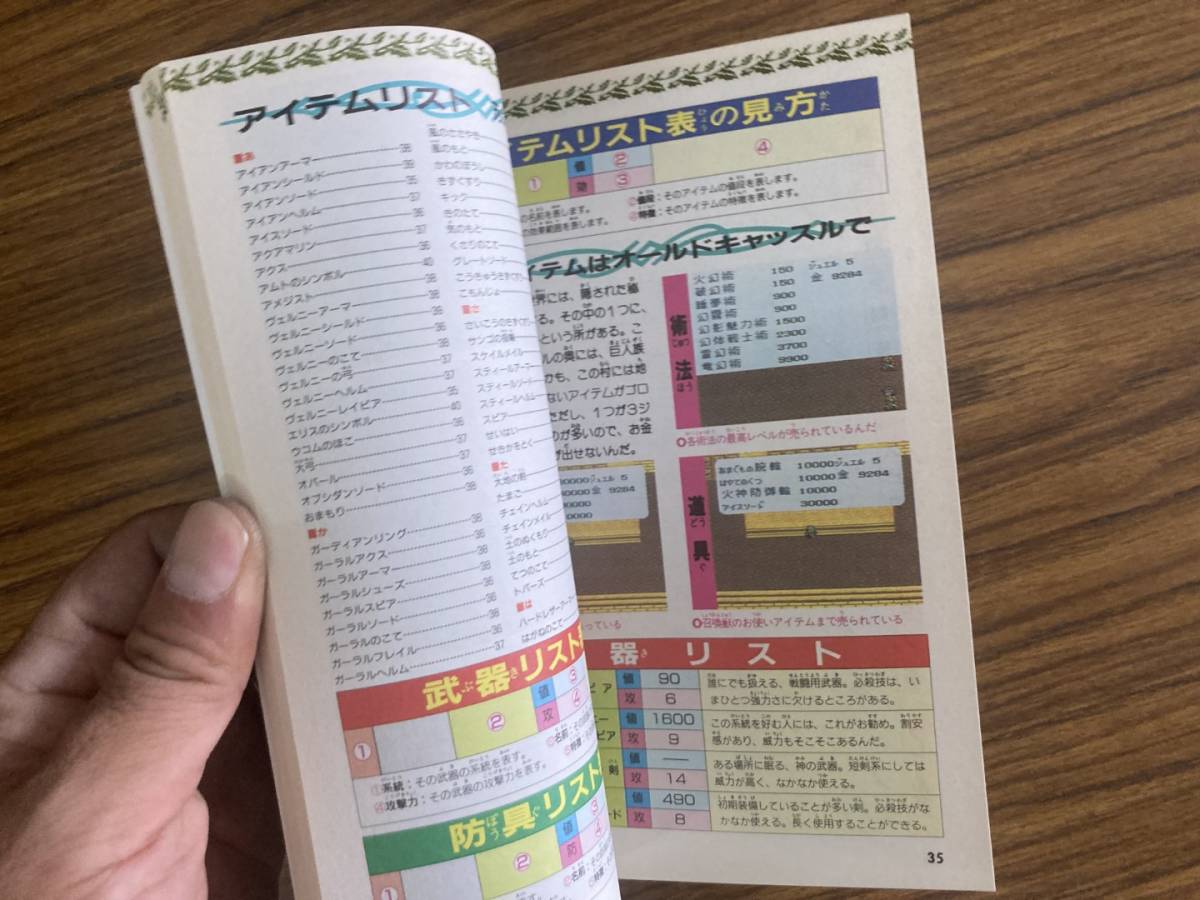 アイテムリスト
■あ
アイアンアーマー 38
アイアンシールド 39
アイアンソード 35
アイアンヘルム 37
アイスソード 36
アクアマリン 37
アクス 36
アムトのシンボル 40
アメジスト 38
ヴェルニーアーマー 38
ヴェルニーシールド 38
ヴェルニーソード 36
ヴェルニーのこて 38
ヴェルニーの弓 37
ヴェルニーヘルム 37
ヴェルニーレイピア 35
エリスのシンボル 40
ウコムのほこ 36
大弓 37
オパール 37
オブシダンソード 36
おまもり 38
■か
ガーディアンリング 38
ガーラルアクス 36
ガーラルアーマー 38
ガーラルシューズ 38
ガーラルスピア 36
ガーラルソード 36
ガーラルのこて 38
ガーラルフレイル 36
ガーラルヘルム 37
風のささやき
風のもと
かわのぼうし
きずぐすり
キック
きのたて
気のもと
くさりのこて
グレートソード
こうきゅうきずぐすり
こもんじょ
■さ
さいこうのきずぐすり
サンゴの指輪
スケイルメイル
スティールアーマー
スティールソード
スティールヘルム
スピア
せいはい
せきかをとく
■た
大地の剣
たまご
チェインヘルム
チェインメイル
土のぬくもり
土のもと
てつのこて
トパーズ
■は
ハードレザーアーマー
はがねのこて
武器リスト
① ② 値 ③
攻 ④
①系統：その武器の系統を表す。
④攻撃力：その武器の攻撃力を表す。
②名前：その
防具リスト
① ② 値 ③
防 ④
テムリスト表の見方
① 値 ② ④
効 ③
の名前を表します。
②値段：そのアイテムの値段を表します。
の効果範囲を表します。
④特徴：そのアイテムの特徴を表します。
イテムはオールドキャッスルで
世界には、隠された
る。その中の1つに、
という所がある。こ
ルの奥には、巨人族
かも、この村には地
ないアイテムがゴロ
ただし、1つが3ジ
のが多いので、お金
が出せないんだ。
術法
火幻術 150 ジュエル 5
破幻術 150 金 9284
睡夢術 900
幻霧術 900
幻影魅力術 1500
幻体戦士術 2300
雷幻術 3700
竜幻術 9900
各術法の最高レベルが売られているんだ
ジュエル 5
金 9284
道具
あまぐもの腕輪 10000 ジュエル 5
はやてのくつ 10000 金 9284
火神防御輪 10000
アイスソード 30000
っている
召喚獣のお使いアイテムまで売られている
器リスト
ピア 値 90 誰にでも扱える、戦闘用武器。必殺技は、い
攻 6 まひとつ強力さに欠けるところがある。
ニー 値 1600 この系統を好む人には、これがお勧め。割安
ピア 攻 9 感があり、威力もそこそこあるんだ。
剣 値 — ある場所に眠る、神の武器。短剣系にしては
攻 14 威力が高く、なかなか使える。
ード 値 490 初期装備していることが多い剣。必殺技がな
攻 8 かなか使える。長く使用することができる。
35